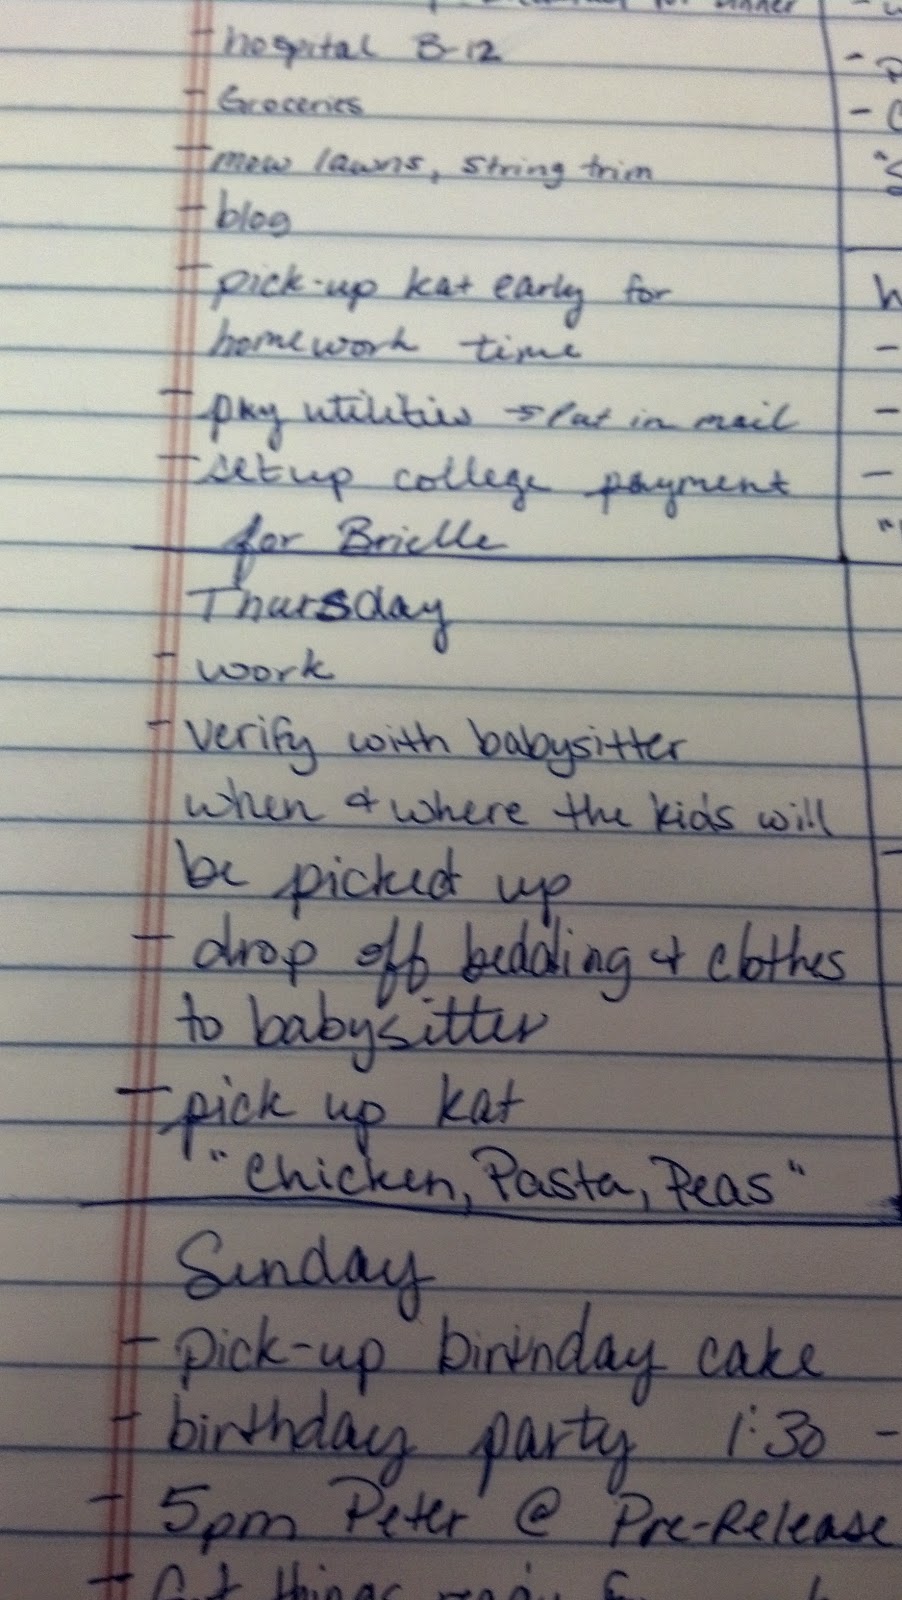 for dinner
- hospital B-12
- Groceries
- mow lawns, string trim
- blog
- pick-up kat early for
homework time
- pay utilities → Put in mail
- set up college payment
for Brielle
Thursday
- work
- verify with babysitter
when & where the kids will
be picked up
- drop off bedding & clothes
to babysitter
- pick up kat
"Chicken, Pasta, Peas"
Sunday
- pick-up birthday cake
- birthday party 1:30 -
- 5pm Peter @ Pre-Release
- Get things ready